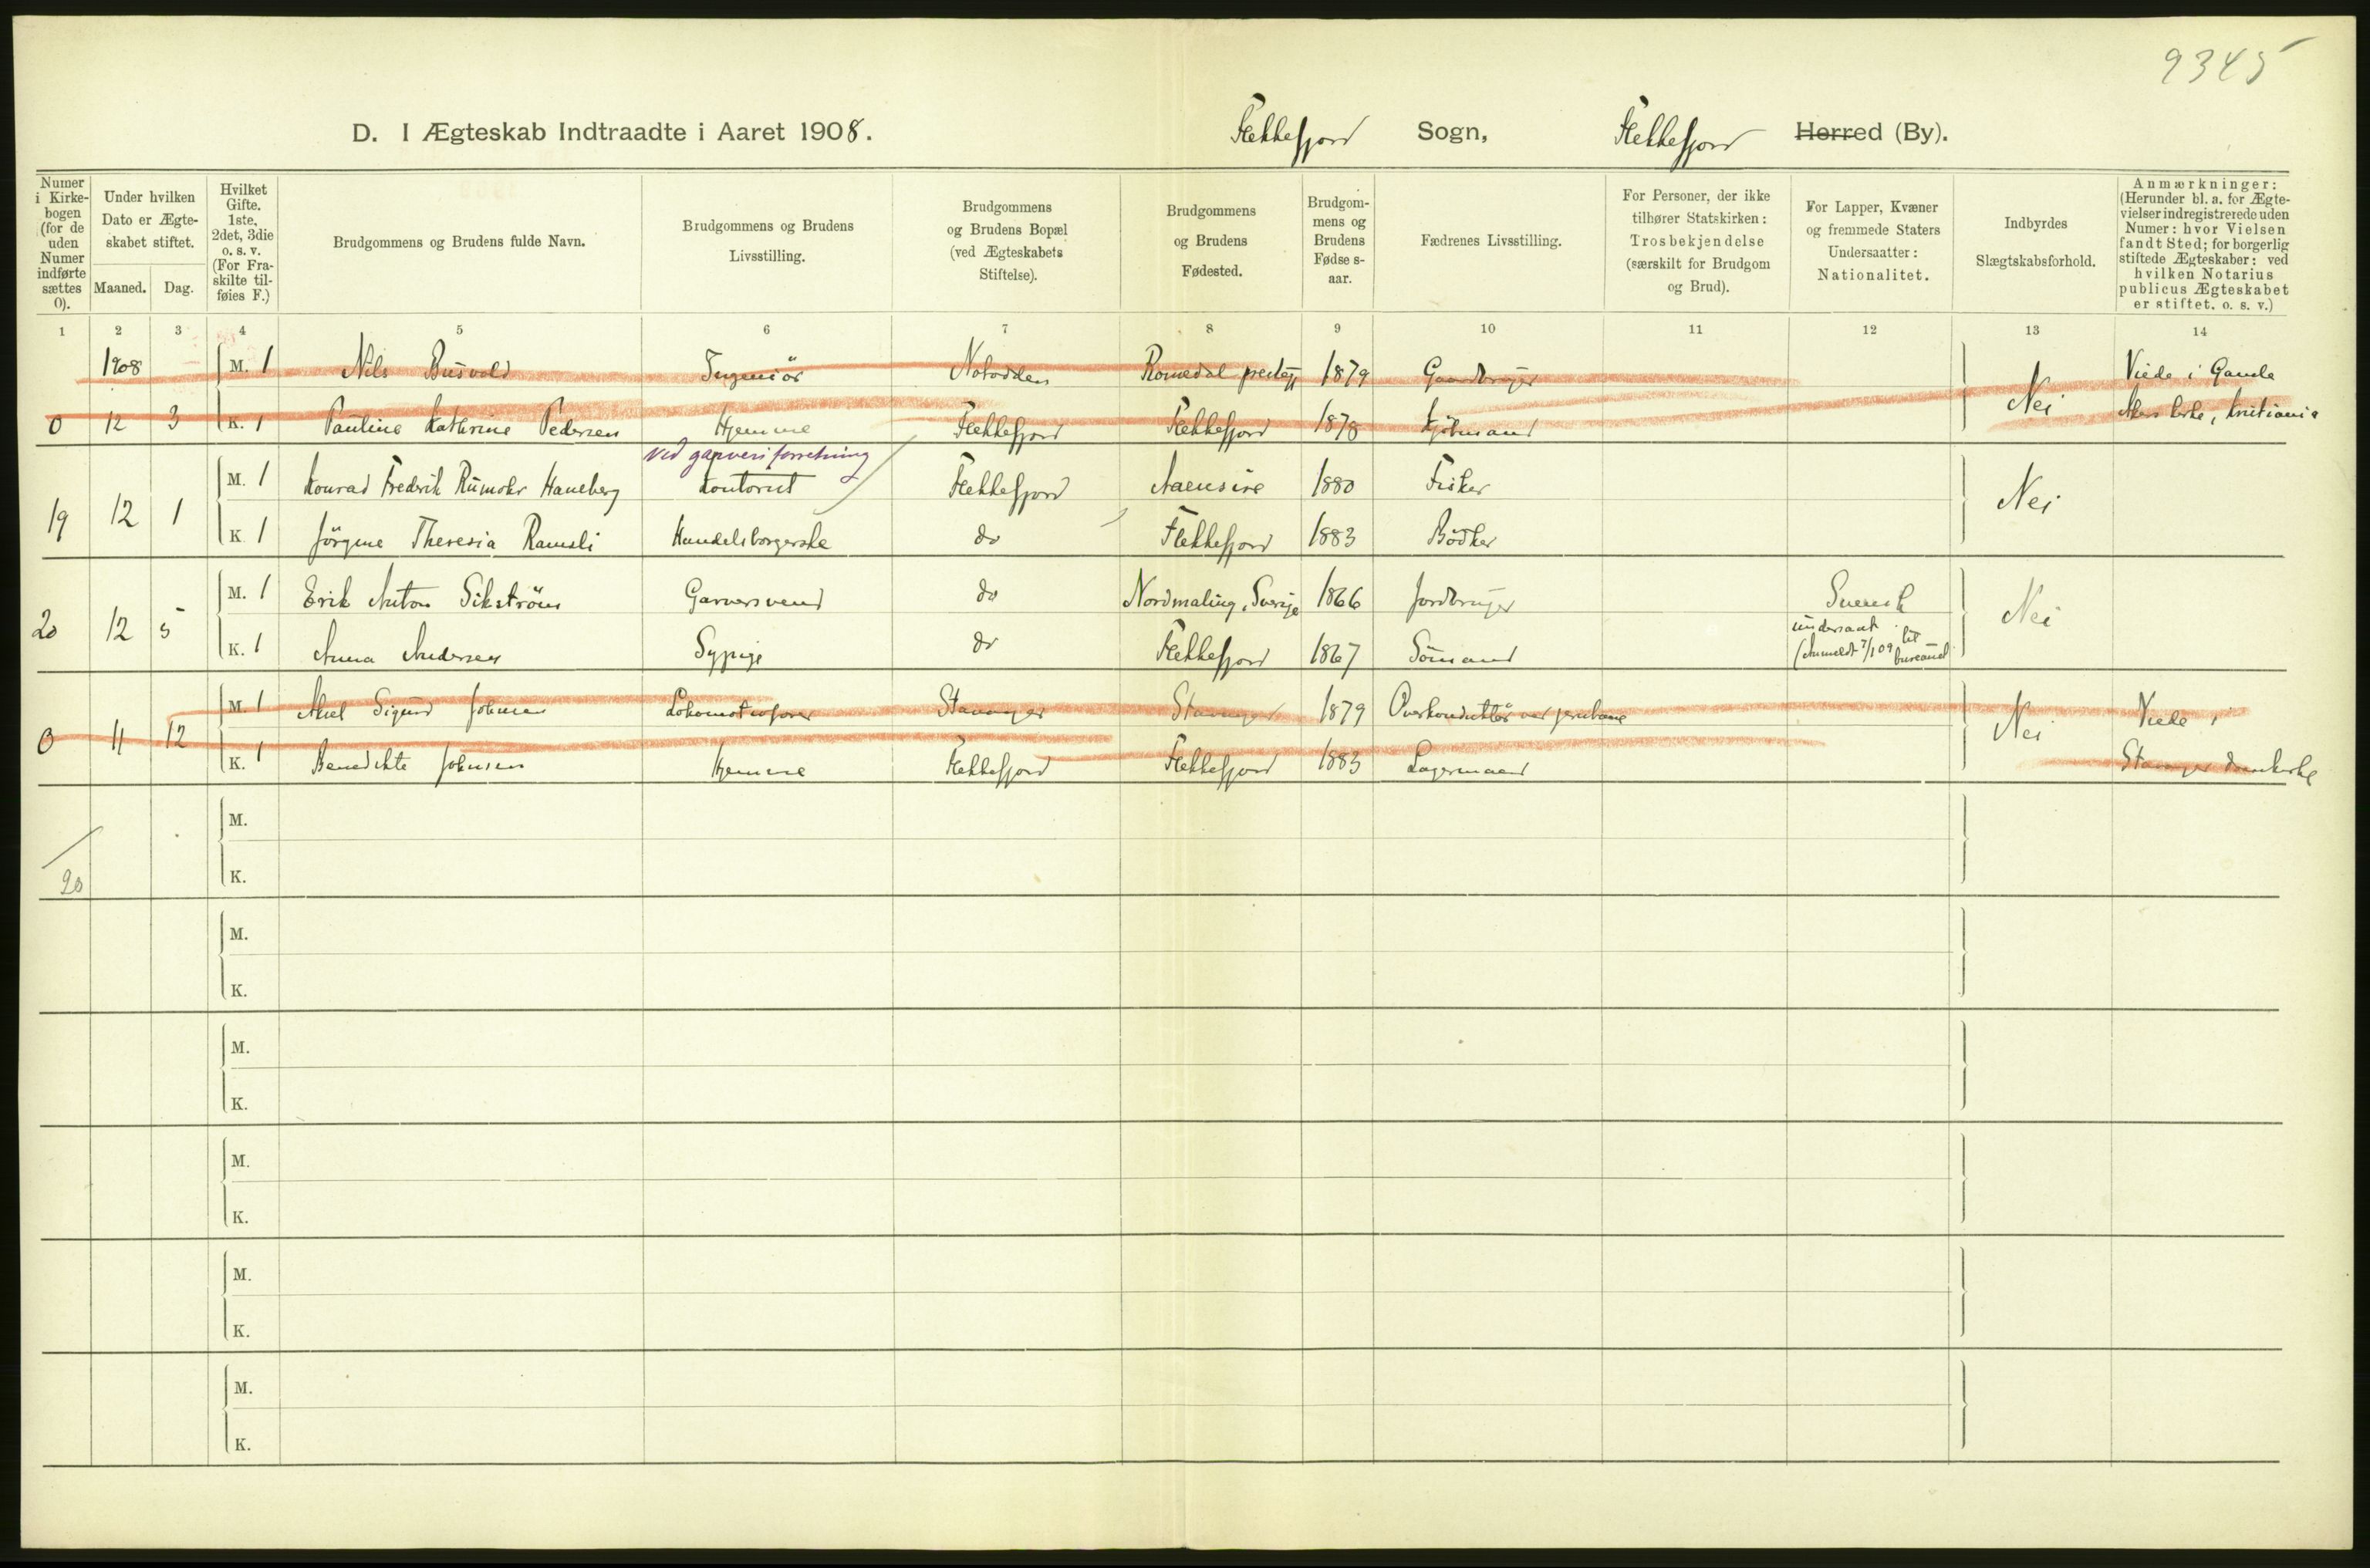 9345
D. I Ægteskab Indtraadte i Aaret 1908.
Flekkefjord Sogn, Flekkefjord Herred (By).
Numer i Kirkebogen (for de uden Numer indførte sættes 0).
Under hvilken Dato er Ægteskabet stiftet.
Maaned. Dag.
Hvilket Gifte. 1ste, 2det, 3die o. s. v. (For Fraskilte tilføies F.)
Brudgommens og Brudens fulde Navn.
Brudgommens og Brudens Livsstilling.
Brudgommens og Brudens Bopæl (ved Ægteskabets Stiftelse).
Brudgommens og Brudens Fødested.
Brudgommens og Brudens Fødselsaar.
Fædrenes Livsstilling.
For Personer, der ikke tilhører Statskirken: Trosbekjendelse (særskilt for Brudgom og Brud).
For Lapper, Kvæner og fremmede Staters Undersaatter: Nationalitet.
Indbyrdes Slægtskabsforhold.
Anmærkninger: (Herunder bl. a. for Ægtevielser indregistrerede uden Numer: hvor Vielsen fandt Sted; for borgerlig stiftede Ægteskaber: ved hvilken Notarius publicus Ægteskabet er stiftet. o. s. v.)
1 2 3 4 5 6 7 8 9 10 11 12 13 14
1908 M. 1 Nils Busvold Ingeniör Notodden Romedal prestegj 1879 Gaardbruger Nei Viede i Gamle
0 12 3 K. 1 Pauline Kathrine Pedersen Hjemme Flekkefjord Flekkefjord 1878 Kjöbmand Akers kirke, Kristiania
ved garveriforretning
M. 1 Konrad Fredrik Rumohr Haneberg Kontorist Flekkefjord Aaensire 1880 Fisker Nei
19 12 1 K. 1 Jörgine Theresia Ramsli Handelsborgerske do Flekkefjord 1883 Bödker
M. 1 Erik Anton Sikström Garversvend do Nordmaling, Sverige 1866 Jordbruger Svensk Nei
20 12 5 K. 1 Anna Andersen Sypige do Flekkefjord 1867 Sömand undersaat
(Anmeldt 7/1 09 til bureauet
M. 1 Axel Sigurd Johnsen Lokomotivförer Stavanger Stavanger 1879 Overkonduktör ved jernbane Nei Viede i
0 11 12 K. 1 Benedikte Johnsen Hjemme Flekkefjord Flekkefjord 1883 Lagermand Stavanger domkirke
M.
20 K.
M.
K.
M.
K.
M.
K.
M.
K.
M.
K.